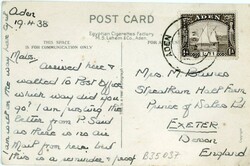 Aden
19.4.38
POST CARD
THIS SPACE IS FOR COMMUNICATION ONLY
Egyptian Cigarettes Factory
M.S. Lehem &Co., Aden.
ADEN
Arrived here &
walked to Post Office
which way did you
go! I am posting the
letter from P Said
as there is no air
Mail from here but
this is a reminder & proof
Mrs M
Streatham Hall Farm
Prince of Wales Rd
EXETER
Devon
England